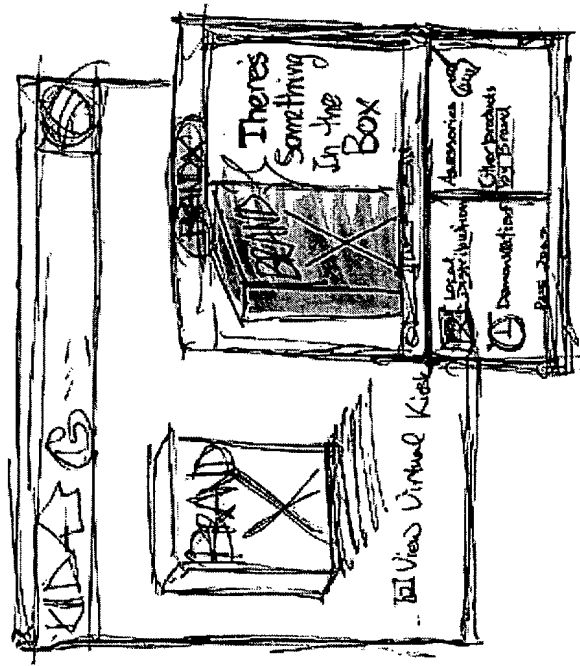 BRAND
X
View Virtual Kiosk
BRAND X
BRAND
X
There's
Something
In the
Box
Local
Distribution
Demonstration
Accessories
Other products
by Brand